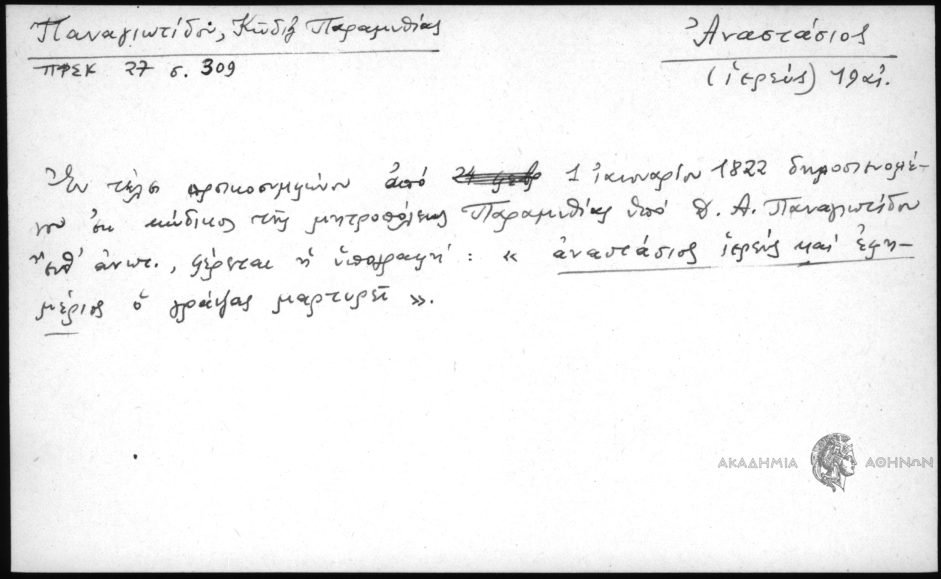 Παναγιωτίδου, Κῶδιξ Παραμυθίας
ΠΦΣΚ 27 σ. 309
Ἀναστάσιος
(ἱερεύς) 19 αἰ.
Ἐν τέλει προικοσυμφώνου ἀπό 1 ἰανουαρίου 1822 δημοσιευομέ-
νου ἐκ κώδικος τῆς μητροπόλεως Παραμυθίας ὑπό Δ. Α. Παναγιωτίδου
ἔνθ' ἀνωτ., φέρεται ἡ ὑπογραφή : « ἀναστάσιος ἱερεύς καί ἐφη-
μέριος ὁ γράψας μαρτυρεῖ ».
ΑΚΑΔΗΜΙΑ ΑΘΗΝΩΝ